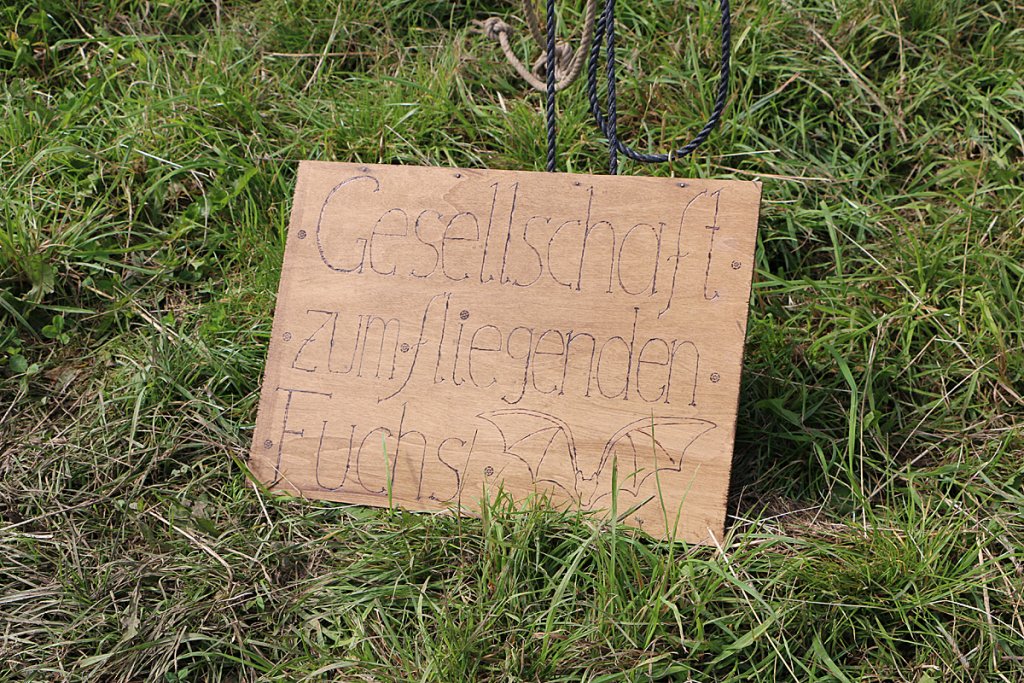 Gesellschaft
zum fliegenden
Fuchs